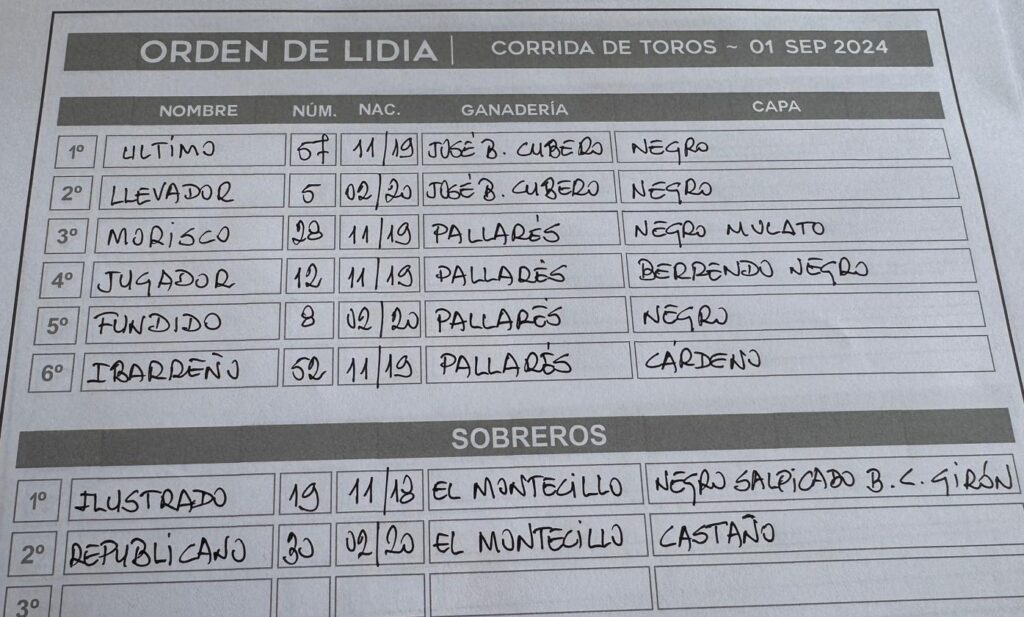 ORDEN DE LIDIA | CORRIDA DE TOROS ~ 01 SEP 2024
NOMBRE NÚM. NAC. GANADERÍA CAPA
1º ULTIMO 57 11/19 JOSÉ B. CUBERO NEGRO
2º LLEVADOR 5 02/20 JOSÉ B. CUBERO NEGRO
3º MORISCO 28 11/19 PALLARÉS NEGRO MULATO
4º JUGADOR 12 11/19 PALLARÉS BERRENDO NEGRO
5º FUNDIDO 8 02/20 PALLARÉS NEGRO
6º IBARREÑO 52 11/19 PALLARÉS CÁRDENO
SOBREROS
1º ILUSTRADO 19 11/18 EL MONTECILLO NEGRO SALPICADO B. C. GIRÓN
2º REPUBLICANO 30 02/20 EL MONTECILLO CASTAÑO
3º